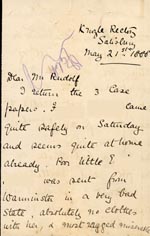 Knoyle Rectory
Salisbury
May 21st 1886
Dear Mr Rudolf
I return the 3 Case
papers. F came
quite safely on Saturday
and seems quite at home
already. Poor little E
was sent from
Warminster in a very bad
State, absolutely no clothes
with her, & most ragged miserable